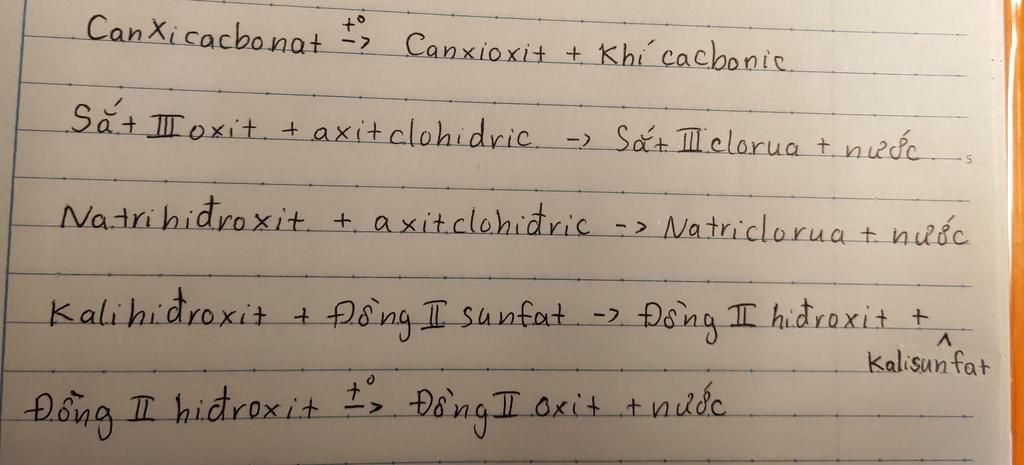 CanXicacbonat t° -> Canxioxit + Khí cacbonic
Sắt III oxit + axitclohidric -> Sắt III clorua + nước
Natrihiđroxit + axitclohiđric -> Natriclorua + nước
Kalihiđroxit + Đồng II sunfat -> Đồng II hiđroxit +
^
Kalisunfat
Đồng II hiđroxit t° -> Đồng II oxit + nước